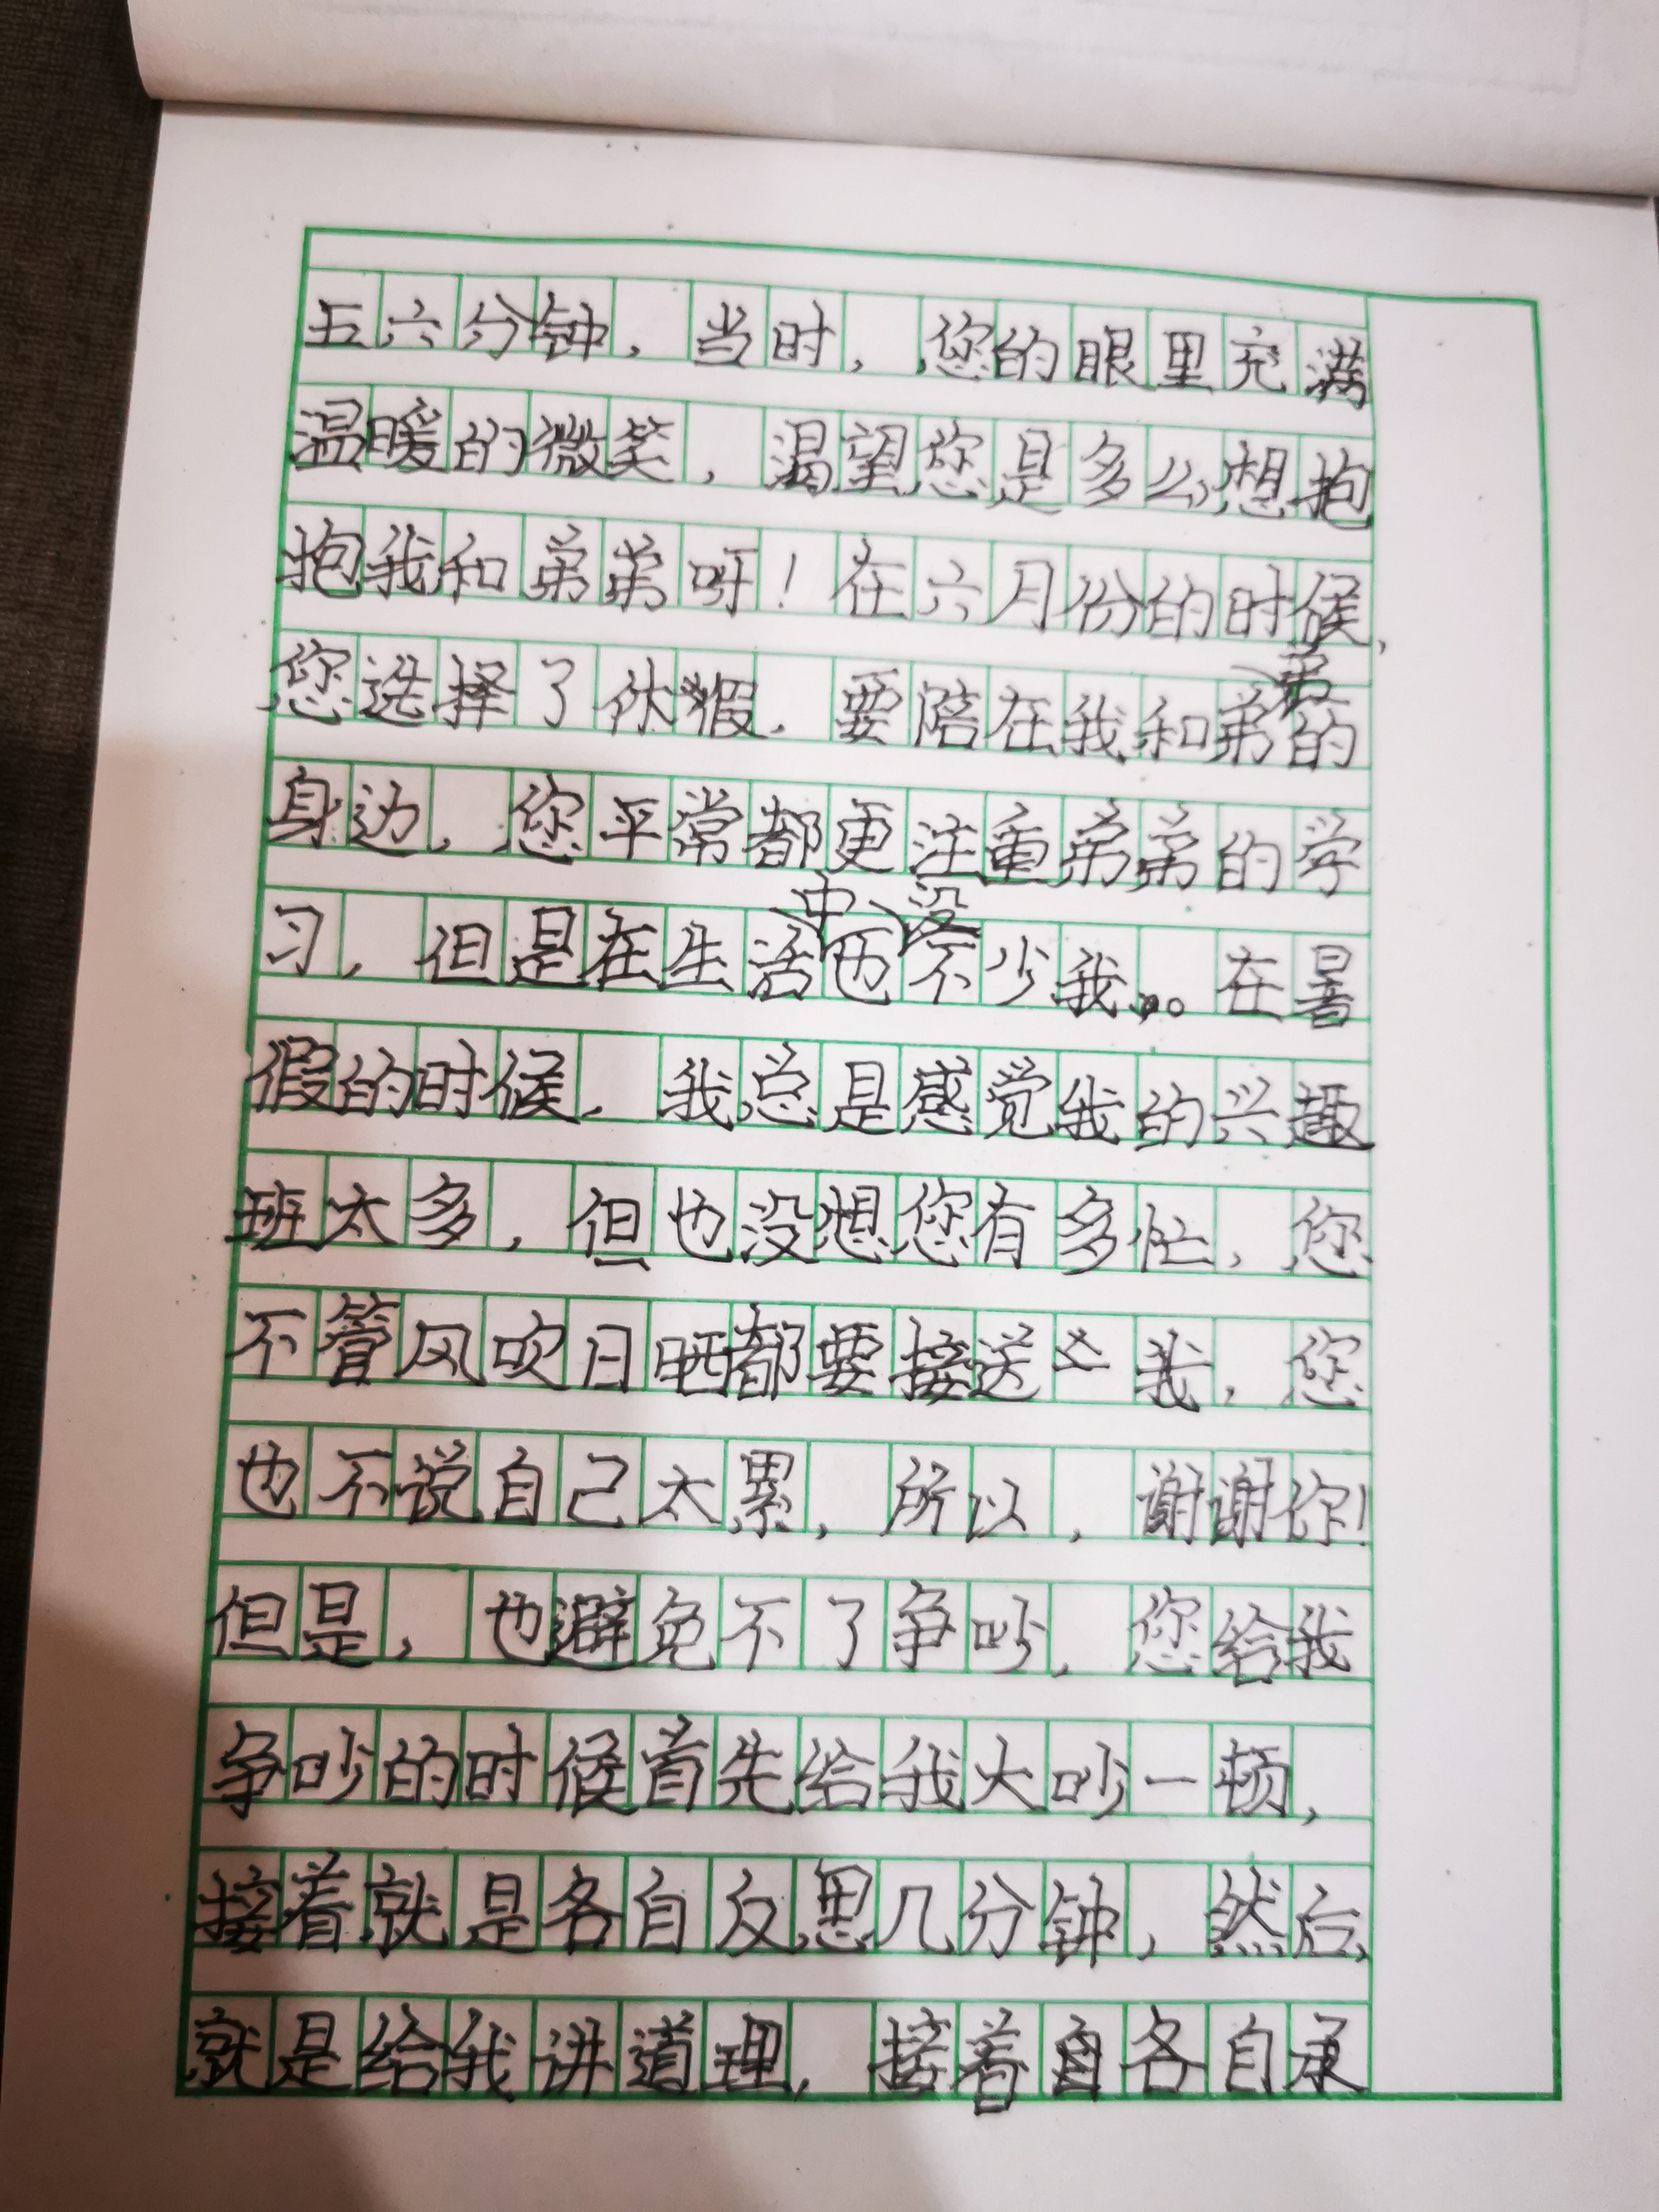 五六分钟，当时，您的眼里充满
温暖的微笑，渴望您是多么想抱
抱我和弟弟呀！在六月份的时候，
您选择了休假，要陪在我和弟弟的
身边，您平常都更注重弟弟的学
习，但是在生活中也没不少我。在暑
假的时候，我总是感觉我的兴趣
班太多，但也没想您有多忙，您
不管风吹日晒都要接送我，您
也不说自己太累，所以，谢谢你！
但是，也避免不了争吵，您给我
争吵的时候首先给我大吵一顿，
接着就是各自反思几分钟，然后，
就是给我讲道理，接着各自承